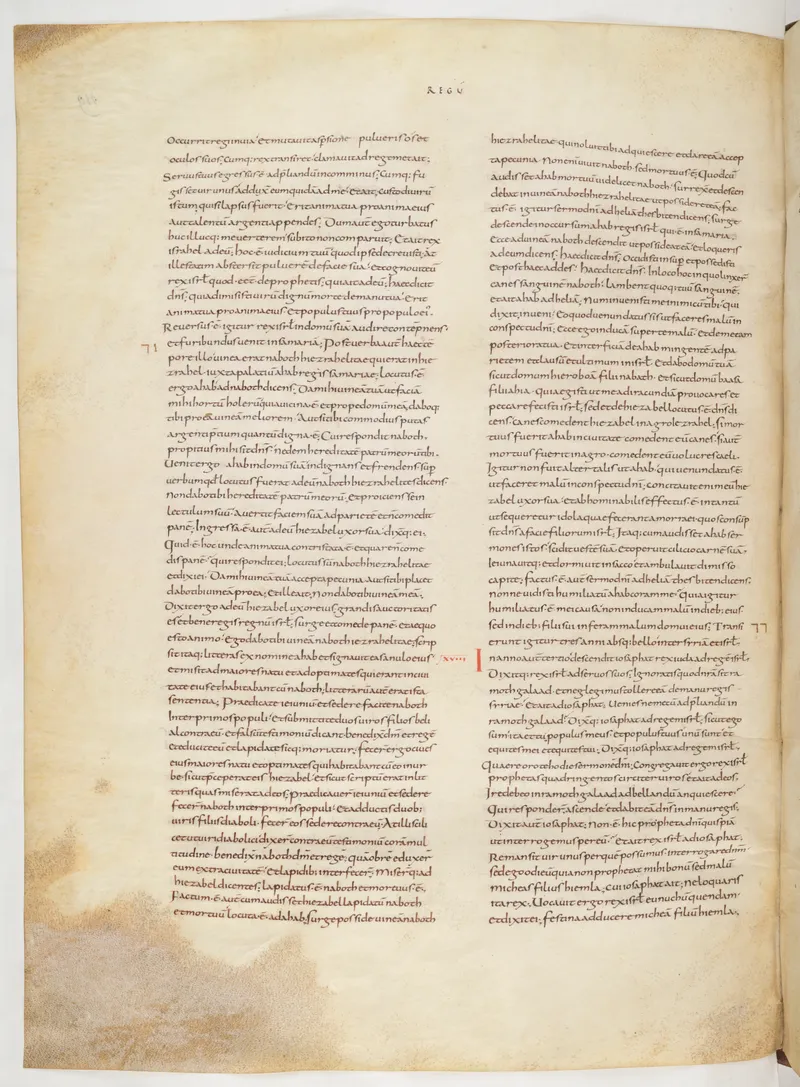 REGŪ
Occurrit regi inuia. et mutauit aspersione pulueris os et
oculos suos; Cumq; rex transiret clamauit ad regem et ait;
Seruus tuus egressus ē ad pliandū in comminus; Cumq; fu
gisset uir unus adduxit eum quidā ad me. et ait; custodi uirū
istum qui si lapsus fuerit. erit anima tua pro anima eius
aut talentū argenti appendes. Dum autē ego turbatus
huc illucq; me uerterem. subito non comparuit; Et ait rex
israhel ad eū; hoc ē iudicium tuū quod ipse decreuisti; At
ille statim abstersit puluerē de facie sua. et cognouit eū
rex isrł quod eēt de prophetis; qui ait ad eū; haec dicit
dn̄s; quia dimisisti uirū dignū morte de manu tua. erit
anima tua pro anima eius. et populus tuus pro populo ei;.
Reuersus ē igitur rex isrł in domū suā. audire contēpnens
et furibundus uenit in samariā; Post uerba autē haec
uinea erat naboth hiezrahelitae qui erat in hie
zrahel. iuxta palatiū ahab regis samariae; Locutus ē
ergo ahab ad naboth dicens; Da mihi uineā tuā ut faciā
mihi hortū holerū quia uicina ē et prope domū meā. daboq;
tibi pro ea uineā meliorem. Aut si tibi commodius putas
argenti p̄tium quantū digna ē; Cui respondit naboth.
propitius mihi sit dn̄s. ne dem hereditatē patrū meorū tibi.
Uenit ergo ahab in domū suā indignans et frendens sup
uerbum qd̄ locutus fuerat ad eū naboth hiezrahelites dicens
non dabo tibi hereditatē patrū meorū. et proiciens se in
lectulum suū. auertit faciem suā ad parietē et n̄ comedit
panē; Ingressa ē autē ad eū hiezabel uxor sua. dixitq; ei;
Quid ē hoc unde anima tua contristata ē. et quare n̄ come
dis panē. qui respondit ei; Locutus sum naboth hiezrahelitae
et dixi ei. Da mihi uineā tuā accepta pecunia. aut si tibi placet
dabo tibi uineā pro ea; Et ille ait; Non dabo tibi uineā meā.
Dixit ergo ad eū hiezabel uxor eius; grandis auctoritatis
es et bene regis regnū isrł; surge et comede panē. et aequo
esto animo. Ego dabo tibi uineā naboth hiezrahelitae; scrip
sit itaq; litteras ex nomine ahab et signauit eas anulo eius
et misit ad maiores natu et ad optimates qui erant in ciui
tate eius et habitabant cū naboth; litterarū autē erat ista
sententia; Praedicate ieiuniū et sedere facite naboth
inter primos populi. et submittite duos uiros filios beli
al contra eū. et falsū testimoniū dicant. benedixit dm̄ et regē
et educite eū et lapidate sicq; moriatur; fecer̄ ergo ciues
eius maiores natu et optimates qui habitabant cū eo in ur
be. sicut p̄ceperat eis hiezabel et sicut scriptū erat in lit
teris quas miserat ad eos; praedicauer̄ ieiuniū et sedere
fecer̄ naboth inter primos populi. et adductis duob;
uiris filiis diaboli. fecer̄ eos sedere contra eū; At illi scili
cet ut uiri diabolici dixer̄ contra eū testimoniū corā mul
titudine. benedixit naboth dm̄ et regē; quā obrē eduxer̄
eum extra ciuitatē. et lapidib; interfecer̄; Miser̄ quad
hiezabel dicentes; Lapidatus ē naboth et mortuus ē.
Factum ē autē cum audisset hiezabel lapidatū naboth
et mortuū locuta ē ad ahab; surge posside uineā naboth
hiezrahelitae qui noluit tibi adquiescere et dare eā accep
ta pecunia. Non enī uiuit naboth. sed mortuus ē; Quod cū
audisset ahab mortuū uidelicet naboth. surrexit et descen
debat in uineā naboth hiezrahelitae ut possideret eā; fac
tus ē igitur sermo dn̄i ad heliā thesbiten dicens; surge
descende in occursum ahab regis isrł qui ē in samaria;
Ecce ad uineā naboth descendit ut possideat eā. et loqueris
ad eum dicens; haec dicit dn̄s; Occidisti insup et possedisti
et post haec addes; haec dicit dn̄s; In loco hoc in quo linxer̄
canes sanguinē naboth. lambent quoq; tuū sanguinē;
et ait ahab ad heliā; Num inuenisti me inimicū tibi. qui
dixit; inueni. eo quod uenundatus sis ut faceres malū in
conspectu dn̄i; Ecce ego inducā super te malū. et demetam
posteriora tua. et interficiā de ahab mingentē ad pa
rietem et clausū et ultimum in isrł. et dabo domū tuā
sicut domum hieroboā filii nabath. et sicut domū baasa
filii ahia. quia egisti ut me ad iracundiā prouocares et
peccare fecisti isrł; sed et de hiezabel locutus ē dn̄s di
cens; canes comedent hiezabel in agro iezrahel; si mor
tuus fuerit ahab in ciuitate comedent eū canes; si autē
mortuus fuerit in agro. comedent eū uolucres caeli.
Igitur non fuit alter talis ut ahab. qui uenundatus ē
ut faceret malū in conspectu dn̄i; concitauit enī eū hie
zabel uxor sua. et abhominabilis effectus ē in tantū
ut sequeretur idola quae fecerant amorrei. quos consūp
sit dn̄s a facie filiorum isrł; Itaq; cum audisset ahab ser
mones istos scidit uestē suā. et operuit cilicio carnē suā.
ieiunauitq; et dormiuit in sacco et ambulauit dimisso
capite; factus ē autē sermo dn̄i ad heliā thesbiten dicens;
nonne uidisti humiliatū ahab coram me. Quia igitur
humiliatus ē mei causa. non inducam malū in dieb; eius
sed in dieb; filii sui inferam malum domui eius; Trans
ierunt igitur tres anni absq; bello inter sirriā et isrł.
xxiii In anno autē tertio descendit iosaphat rex iuda ad regē isrł.
Dixitq; rex isrł ad seruos suos; Ignoratis quod nr̄a sit ra
moth galaad. et neglegimus tollere eā de manu regis
sirriae; Et ait ad iosaphat; Uenies ne mecū ad pliandū in
ramoth galaad. Dixitq; iosaphat ad regem isrł; sicut ego
sum ita et tu; populus meus et populus tuus unū sunt. et
equites mei et equites tui. Dixitq; iosaphat ad regem isrł.
Quaere oro te hodie sermonē dn̄i; Congregauit ergo rex isrł
prophetas quadringentos circiter uiros et ait ad eos;
Ire debeo in ramoth galaad ad bellandū an quiescere;
Qui responder̄; ascende et dabit eā dn̄s in manu regis;
Dixit autē iosaphat; Non ē hic propheta dn̄i quispiā
ut interrogemus per eū; Et ait rex isrł ad iosaphat;
Remansit uir unus per quē possumus interrogare dn̄m
sed ego odi eū quia non prophetat mihi bonū sed malū
micheas filius hiemla; cui iosaphat ait; ne loquaris
ita rex; Uocauit ergo rex isrł eunuchū quendam
et dixit ei; festina adducere micheā filiū hiemla;